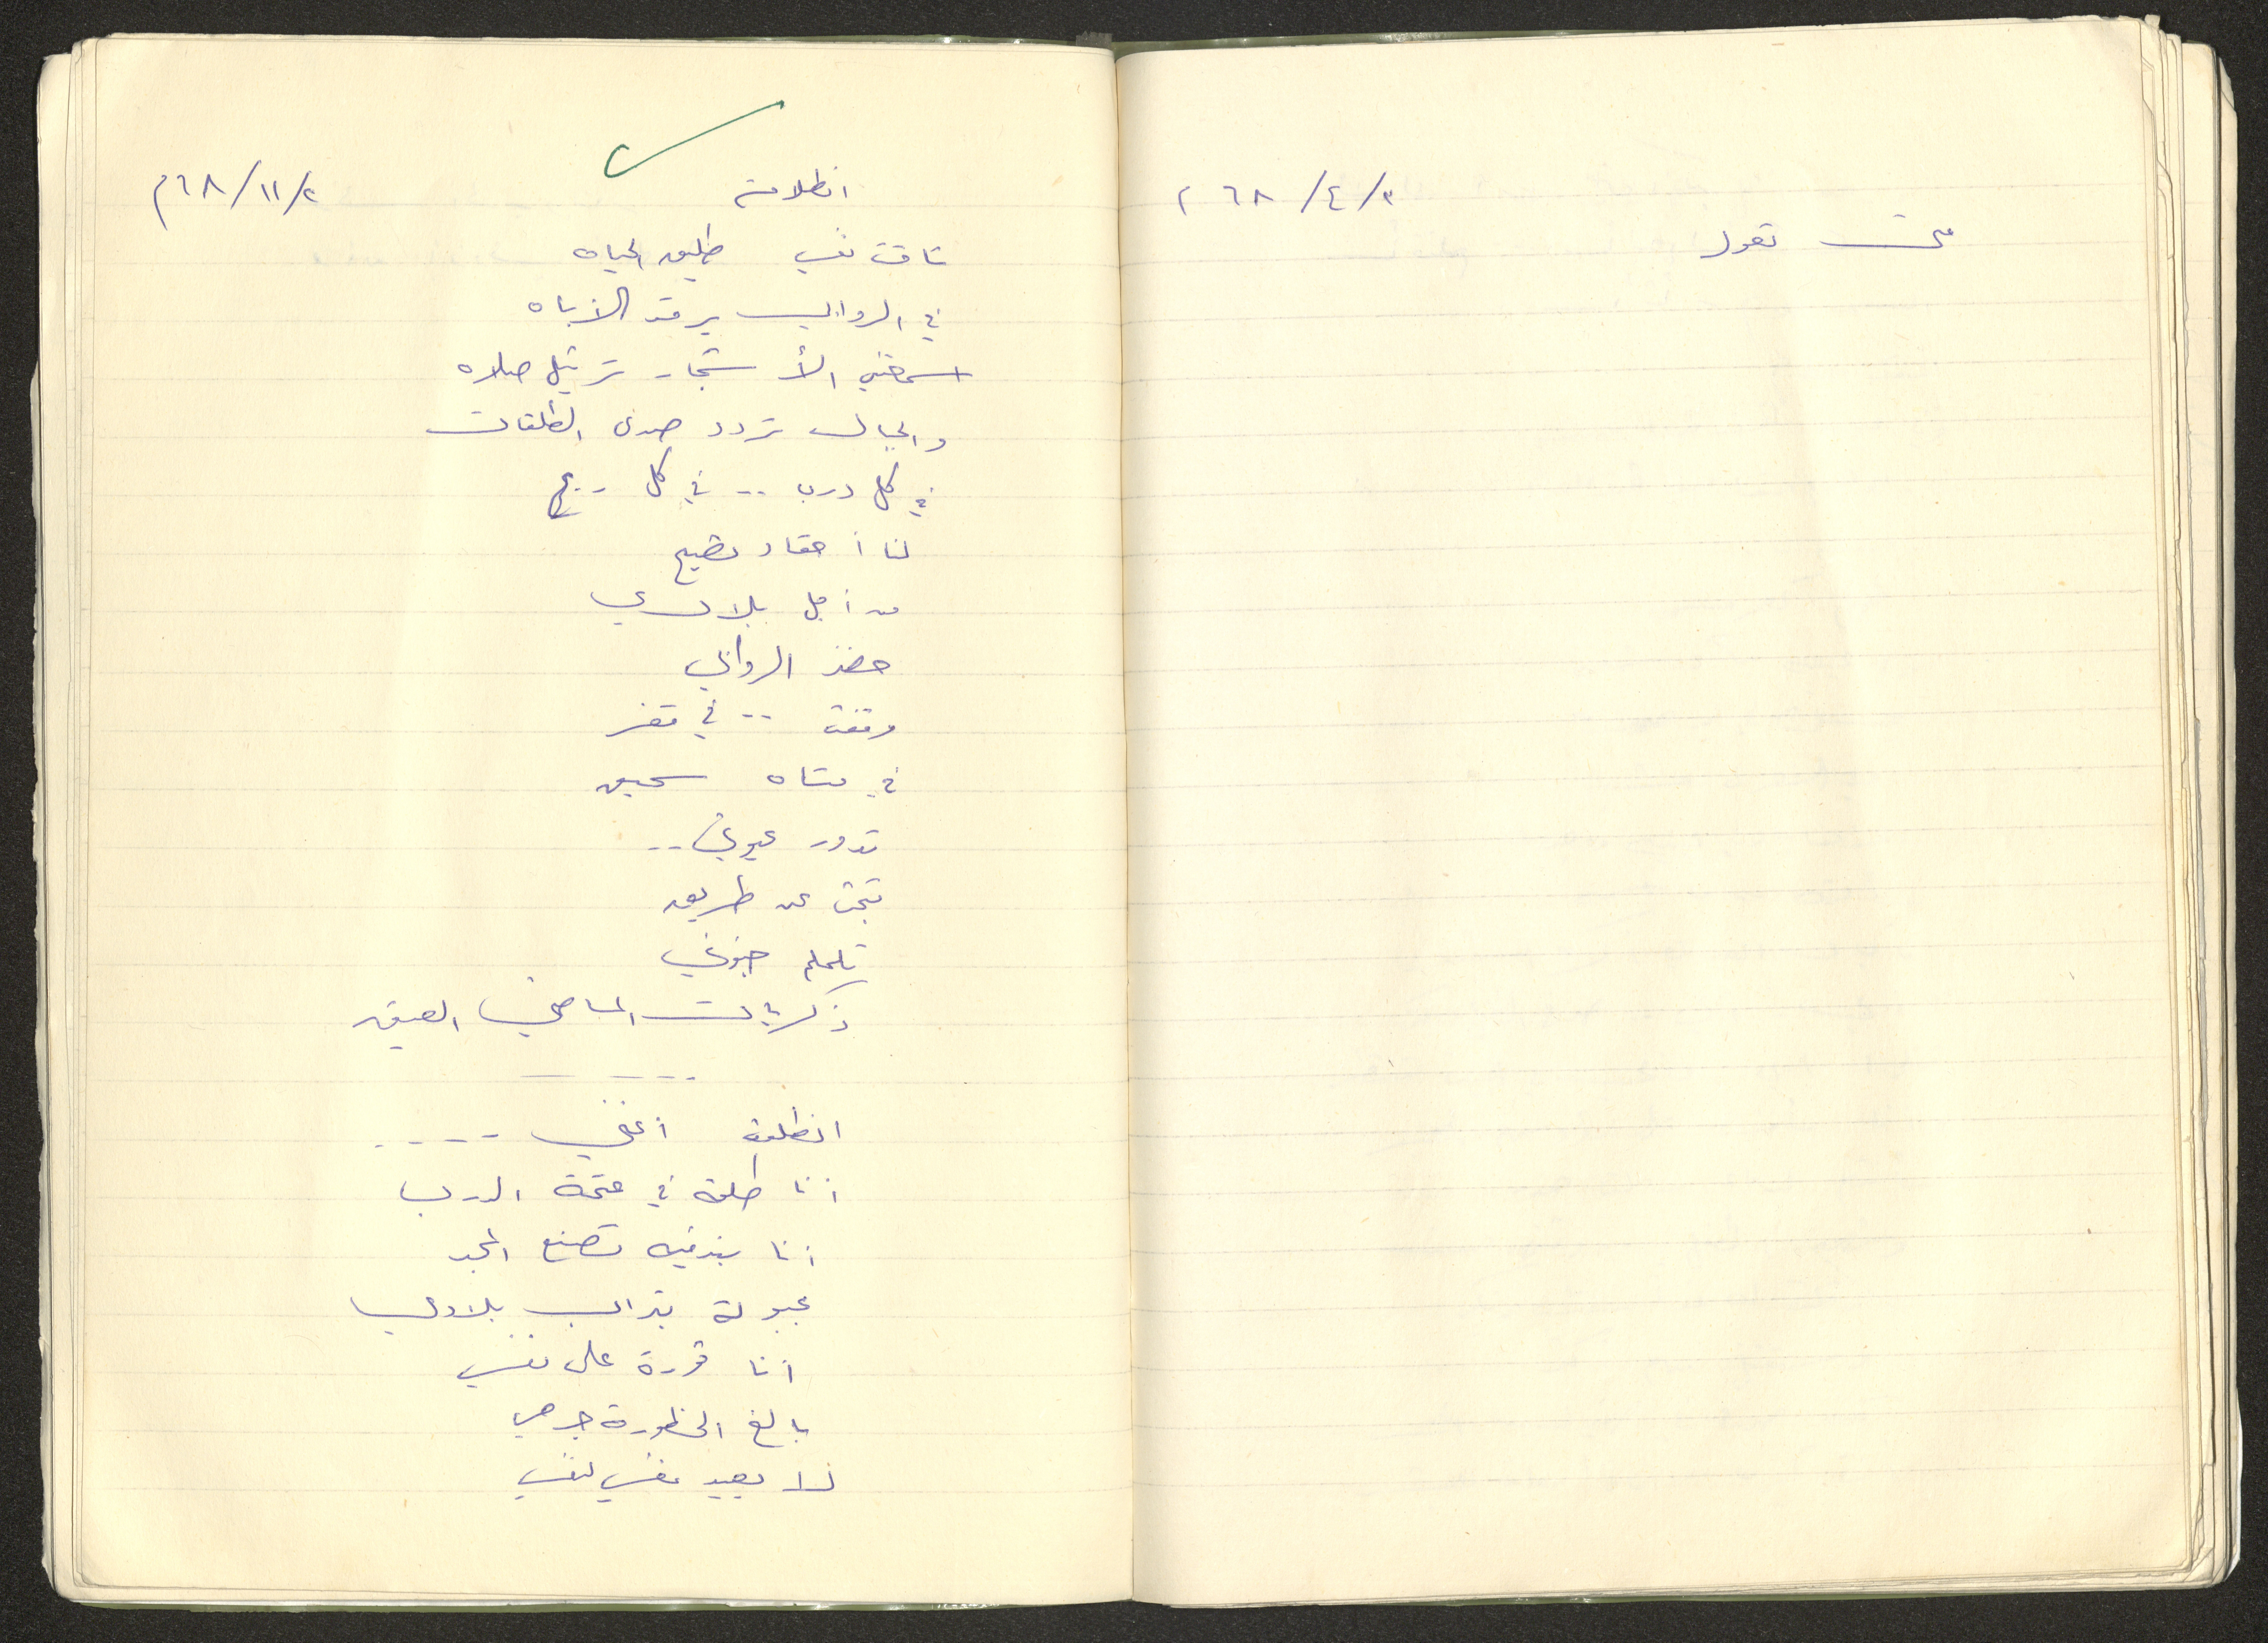 ٦٨/٤/٣ م
متى تقول
انطلاقة
٦٨/١١/٢م
تاقت نفسي طليق الحياه
في الروابي يرقد الأباه
اسمعني الأشجار ترتيل صلاه
والجبال تردد صدى الطلقات
في كل درب .. في كل ريح
لنا أحقاد تصيح
من أجل بلادي
حضن الروابي
وقفت .. في قفر
في متاه سحيق
تدور عيوني ..
تبحث عن طريق
تلملم جفوني
ذكريات الماضي العميق
انطلقت أغني ----
أنا طلقة في عتمة الدرب
أنا بندقيه تصنع المجد
مجبولة بتراب بلادي
أنا ثورة على نفسي
بالغ الخطورة جرحي
لا يعيد نفسي لنفسي